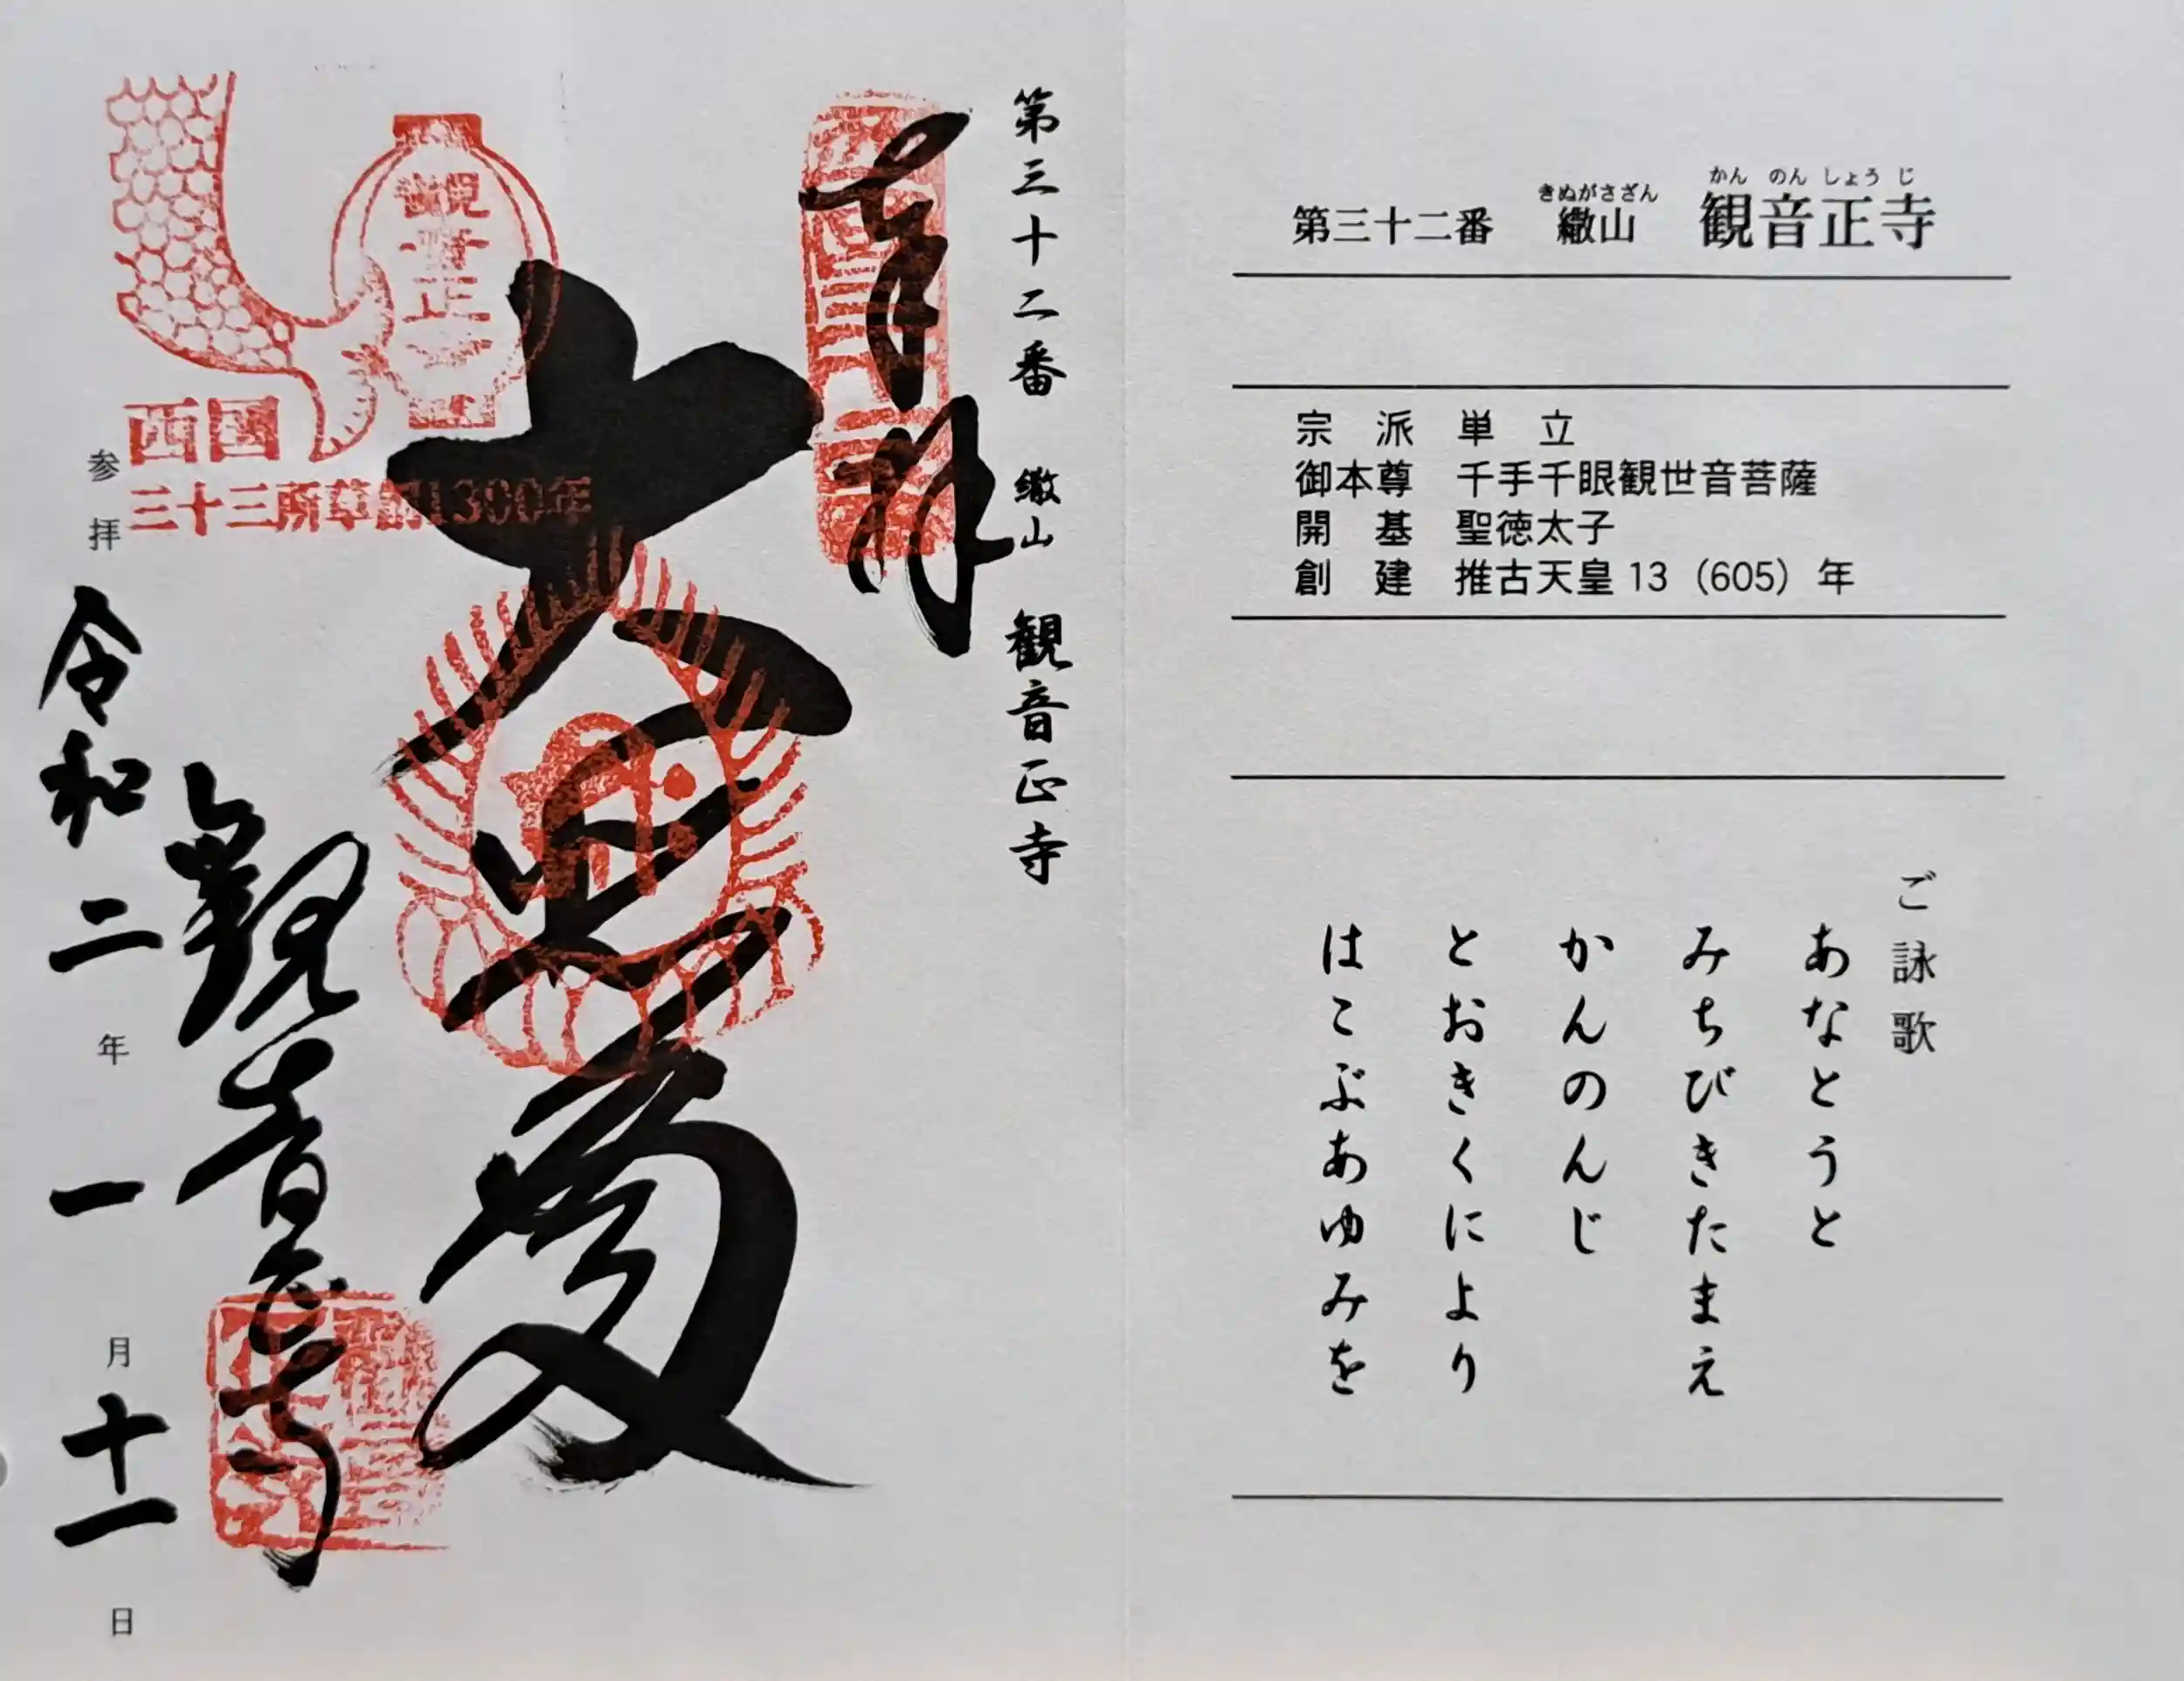 きぬがさざん かんのんしょうじ
第三十二番 繖山 観音正寺
宗派 単立
御本尊 千手千眼観世音菩薩
開基 聖徳太子
創建 推古天皇13（605）年
ご詠歌
あなとうと
みちびきたまえ
かんのんじ
とおきくにより
はこぶあゆみを
第三十二番 繖山 観音正寺
奉拝
大悲殿
西国
三十三所草創1300年
観音正寺
参拝 令和二年一月十一日